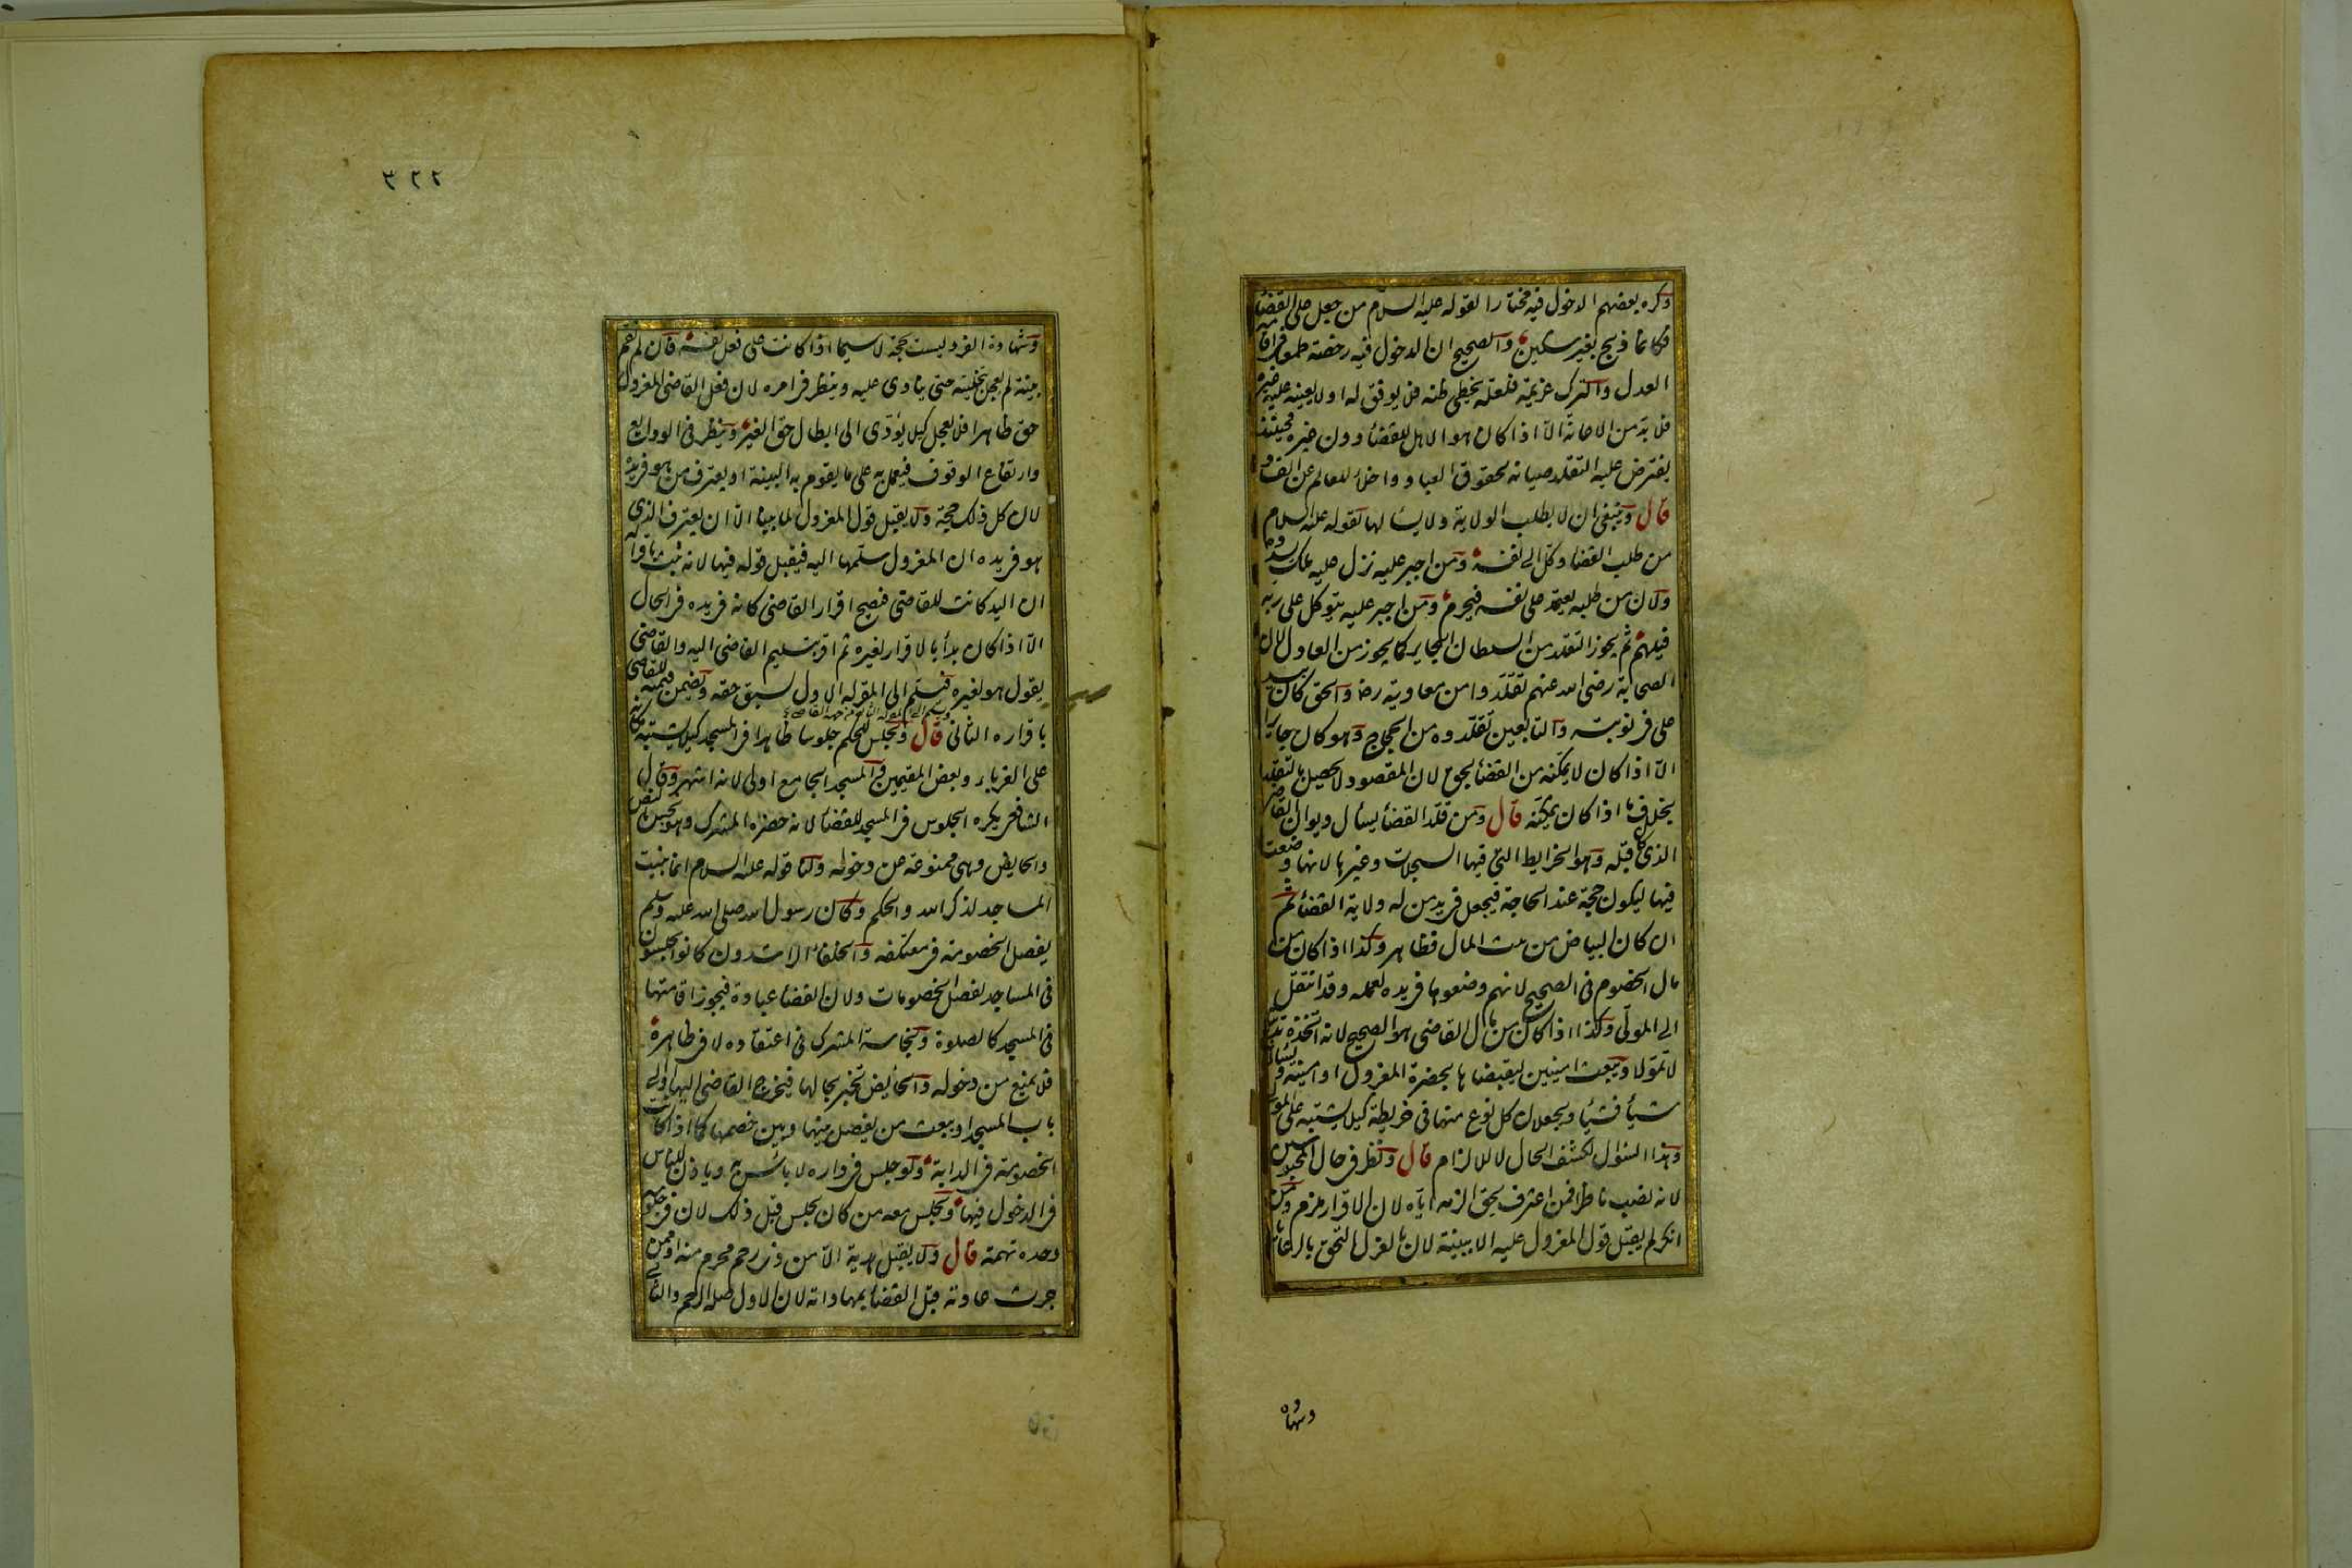 وكره بعضهم الدخول فيه مختارا لقوله عليه السلام من جعل على القضاء
فكانما ذبح بغير سكين والصحيح ان الدخول فيه رخصة طمعا في اقامة
العدل والترك عزيمة فلعله يخطى ظنه فلا يوفق له او لا يعينه عليه غيره
فلا بد من الاعانة الا اذا كان هو الاهل للقضاء دون غيره فحينئذ
يفترض عليه التقلد صيانة لحقوق العباد واخلاء للعالم عن الفساد
قال وينبغى ان لا يطلب الولاية ولا يسالها لقوله عليه السلام
من طلب القضا وكل الى نفسه ومن اجبر عليه نزل عليه ملك يسدده
ولان من طلبه يعتمد على نفسه فيحرم ومن اجبر عليه يتوكل على ربه
فيلهم ثم يجوز التقلد من السلطان الجاير كما يجوز من العادل لان
الصحابة رضى الله عنهم تقلدوا من معاوية رض والحق كان بيد
على فى نوبته والتابعين تقلدوه من الحجاج وهو كان جايرا
الا اذا كان لا يمكنه من القضا بحق لان المقصود لا يحصل بالتقلد
بخلاف ما اذا كان يمكنه قال ومن قلد القضاء يسأل ديوان القاضى
الذى كان قبله وهو الخرايط التى فيها السجلات وغيرها لانها وضعت
فيها ليكون حجة عند الحاجة فيجعل فى يد من له ولاية القضاء ثم
ان كان البياض من بيت المال فظاهر وكذا اذا كان من
مال الخصوم فى الصحيح لانهم وضعوها فى يده لعمله وقد انتقل
الى المولى وكذا اذا كان من مال القاضى هو الصحيح لانه اتخذه تدينا
لا تمولا ويبعث امينين ليقبضاها بحضرة المعزول او امينه ويسالانه
شيأ فشيأ ويجعلان كل نوع منها فى خريطة كيلا يشتبه على المولى
وهذا السؤال لكشف الحال لا للالزام قال وينظر فى حال المحبوسين
لانه نصب ناظرا فمن اعترف بحق الزمه اياه لان الاقرار ملزم ومن
انكر لم يقبل قول المعزول عليه الا ببينة لان بالعزل التحق بالرعايا
وشهادة
٣٢٢
وشهادة الفرد ليست بحجة لا سيما اذا كانت على فعل نفسه فان لم تقم
بينة لم يعجل بتخليته حتى ينادى عليه وينظر فى امره لان فعل القاضى المعزول
حق ظاهرا فلا يعجل كيلا يؤدى الى ابطال حق الغير وينظر فى الودايع
وارتفاع الوقوف فيعمل به على ما يقوم به البينة او يعترف من هو فى يده
لان كل ذلك حجة ولا يقبل قول المعزول لما بينا الا ان يعترف الذى
هو فى يده ان المعزول سلمها اليه فيقبل قوله فيها لانه ثبت باقراره
ان اليد كانت للقاضى فصح اقرار القاضى كانه فى يده فى الحال
الا اذا كان بدأ بالاقرار لغيره ثم اقر بتسليم القاضى اليه والقاضى
يقول هو لغيره فيسلم الى المقر له الاول لسبق حقه ويضمن قيمته للقاضى
باقراره الثانى قال ويجلس للحكم جلوسا ظاهرا فى المسجد كيلا يشتبه مكانه
على الغرباء وبعض المقيمين والمسجد الجامع اولى لانه اشهر وقال
الشافعى يكره الجلوس فى المسجد للقضاء لانه حضره المشرك وهو نجس بالنص
والحايض وهى ممنوعة عن دخوله ولنا قوله عليه السلام انما بنيت
المساجد لذكر الله والحكم وكان رسول الله صلى الله عليه وسلم
يفصل الخصومة فى معتكفه والخلفاء الراشدون كانوا يجلسون
فى المساجد لفصل الخصومات ولان القضا عبادة فيجوز اقامتها
فى المسجد كالصلوة ونجاسة المشرك فى اعتقاده لا فى ظاهره
فلا يمنع من دخوله والحايض تخبر بحالها فيخرج القاضى اليها او الى
باب المسجد او يبعث من يفصل بينها وبين خصمها كما اذا كانت
الخصومة فى الدابة ولو جلس فى داره لا بأس به وياذن للناس
فى الدخول فيها ويجلس معه من كان يجلس قبل ذلك لان فى جلوسه
وحده تهمة قال ولا يقبل هدية الا من ذى رحم محرم منه او ممن
جرت عادته قبل القضاء بمهاداته لان الاول صلة الرحم والثانى